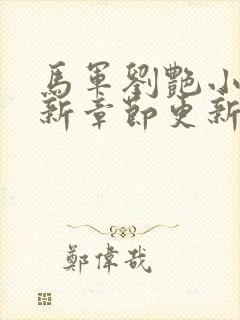 馬軍劉艷小
新章節更新
鄭偉哉